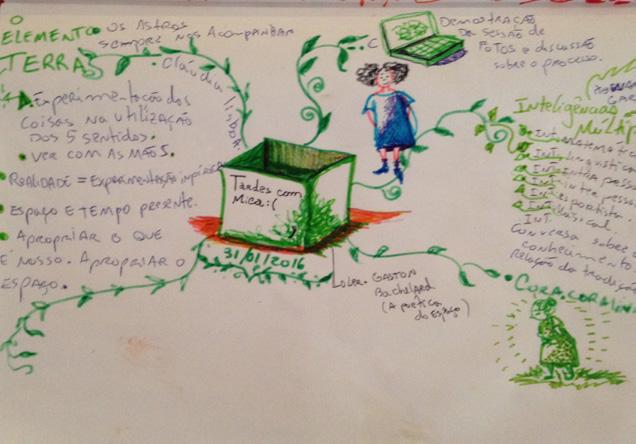 O
ELEMENTO
TERRA
OS ASTROS
SEMPRE NOS ACOMPANHAM
Cláudia Lisboa
Experimentação dos
coisas na utilização
dos 5 sentidos.
VER COM AS MÃOS.
REALIDADE = Experimentação
ESPAÇO E TEMPO PRESENTE.
Apropriar o que
é nosso. Apropriar o
espaço.
Tardes com
Mica :(
31/01/2016
GASTON
Bachelard
(A poética
do Espaço)
DEMOSTRAÇÃO
DA SESSÃO DE
FOTOS e discussão
sobre o processo.
Inteligências
Múltip
INT. matemát
INT. linguistica
INT.
INT.
INT. esportista
INT. musical
INT.
Conversa sobre o
conhecimento
relação da tradição
CORA CORALINA